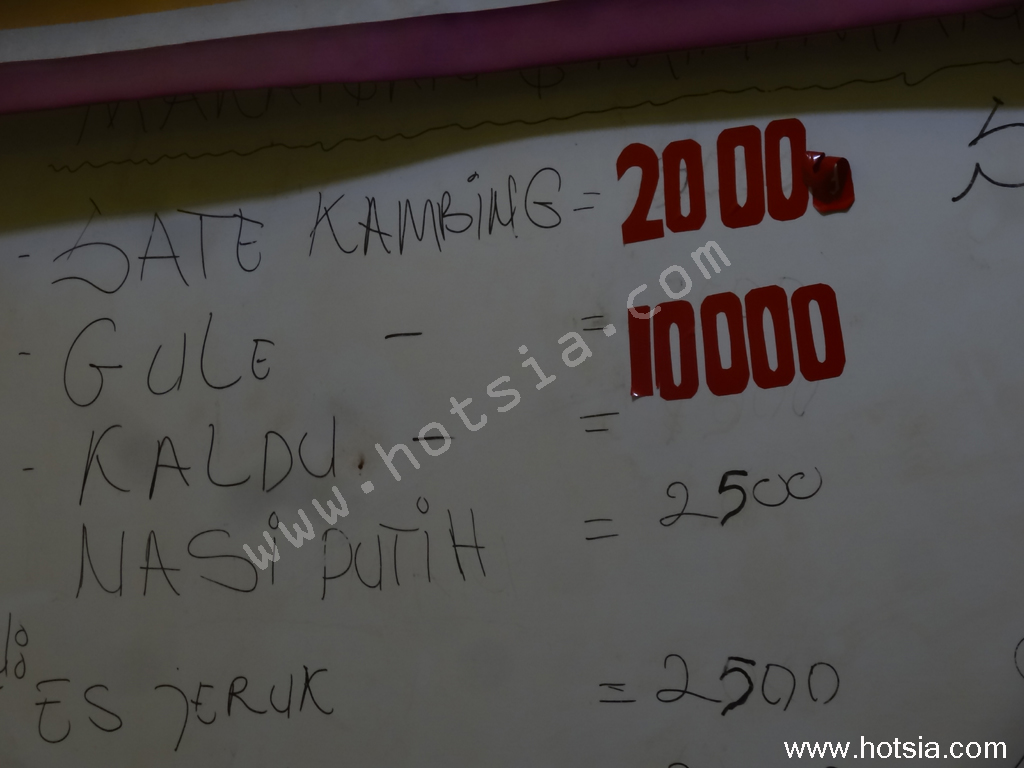 - SATE KAMBING = 2000
- GULE - = 10000
- KALDU - =
NASI PUTIH = 2500
ES JERUK = 2500
www.hotsia.com
www.hotsia.com